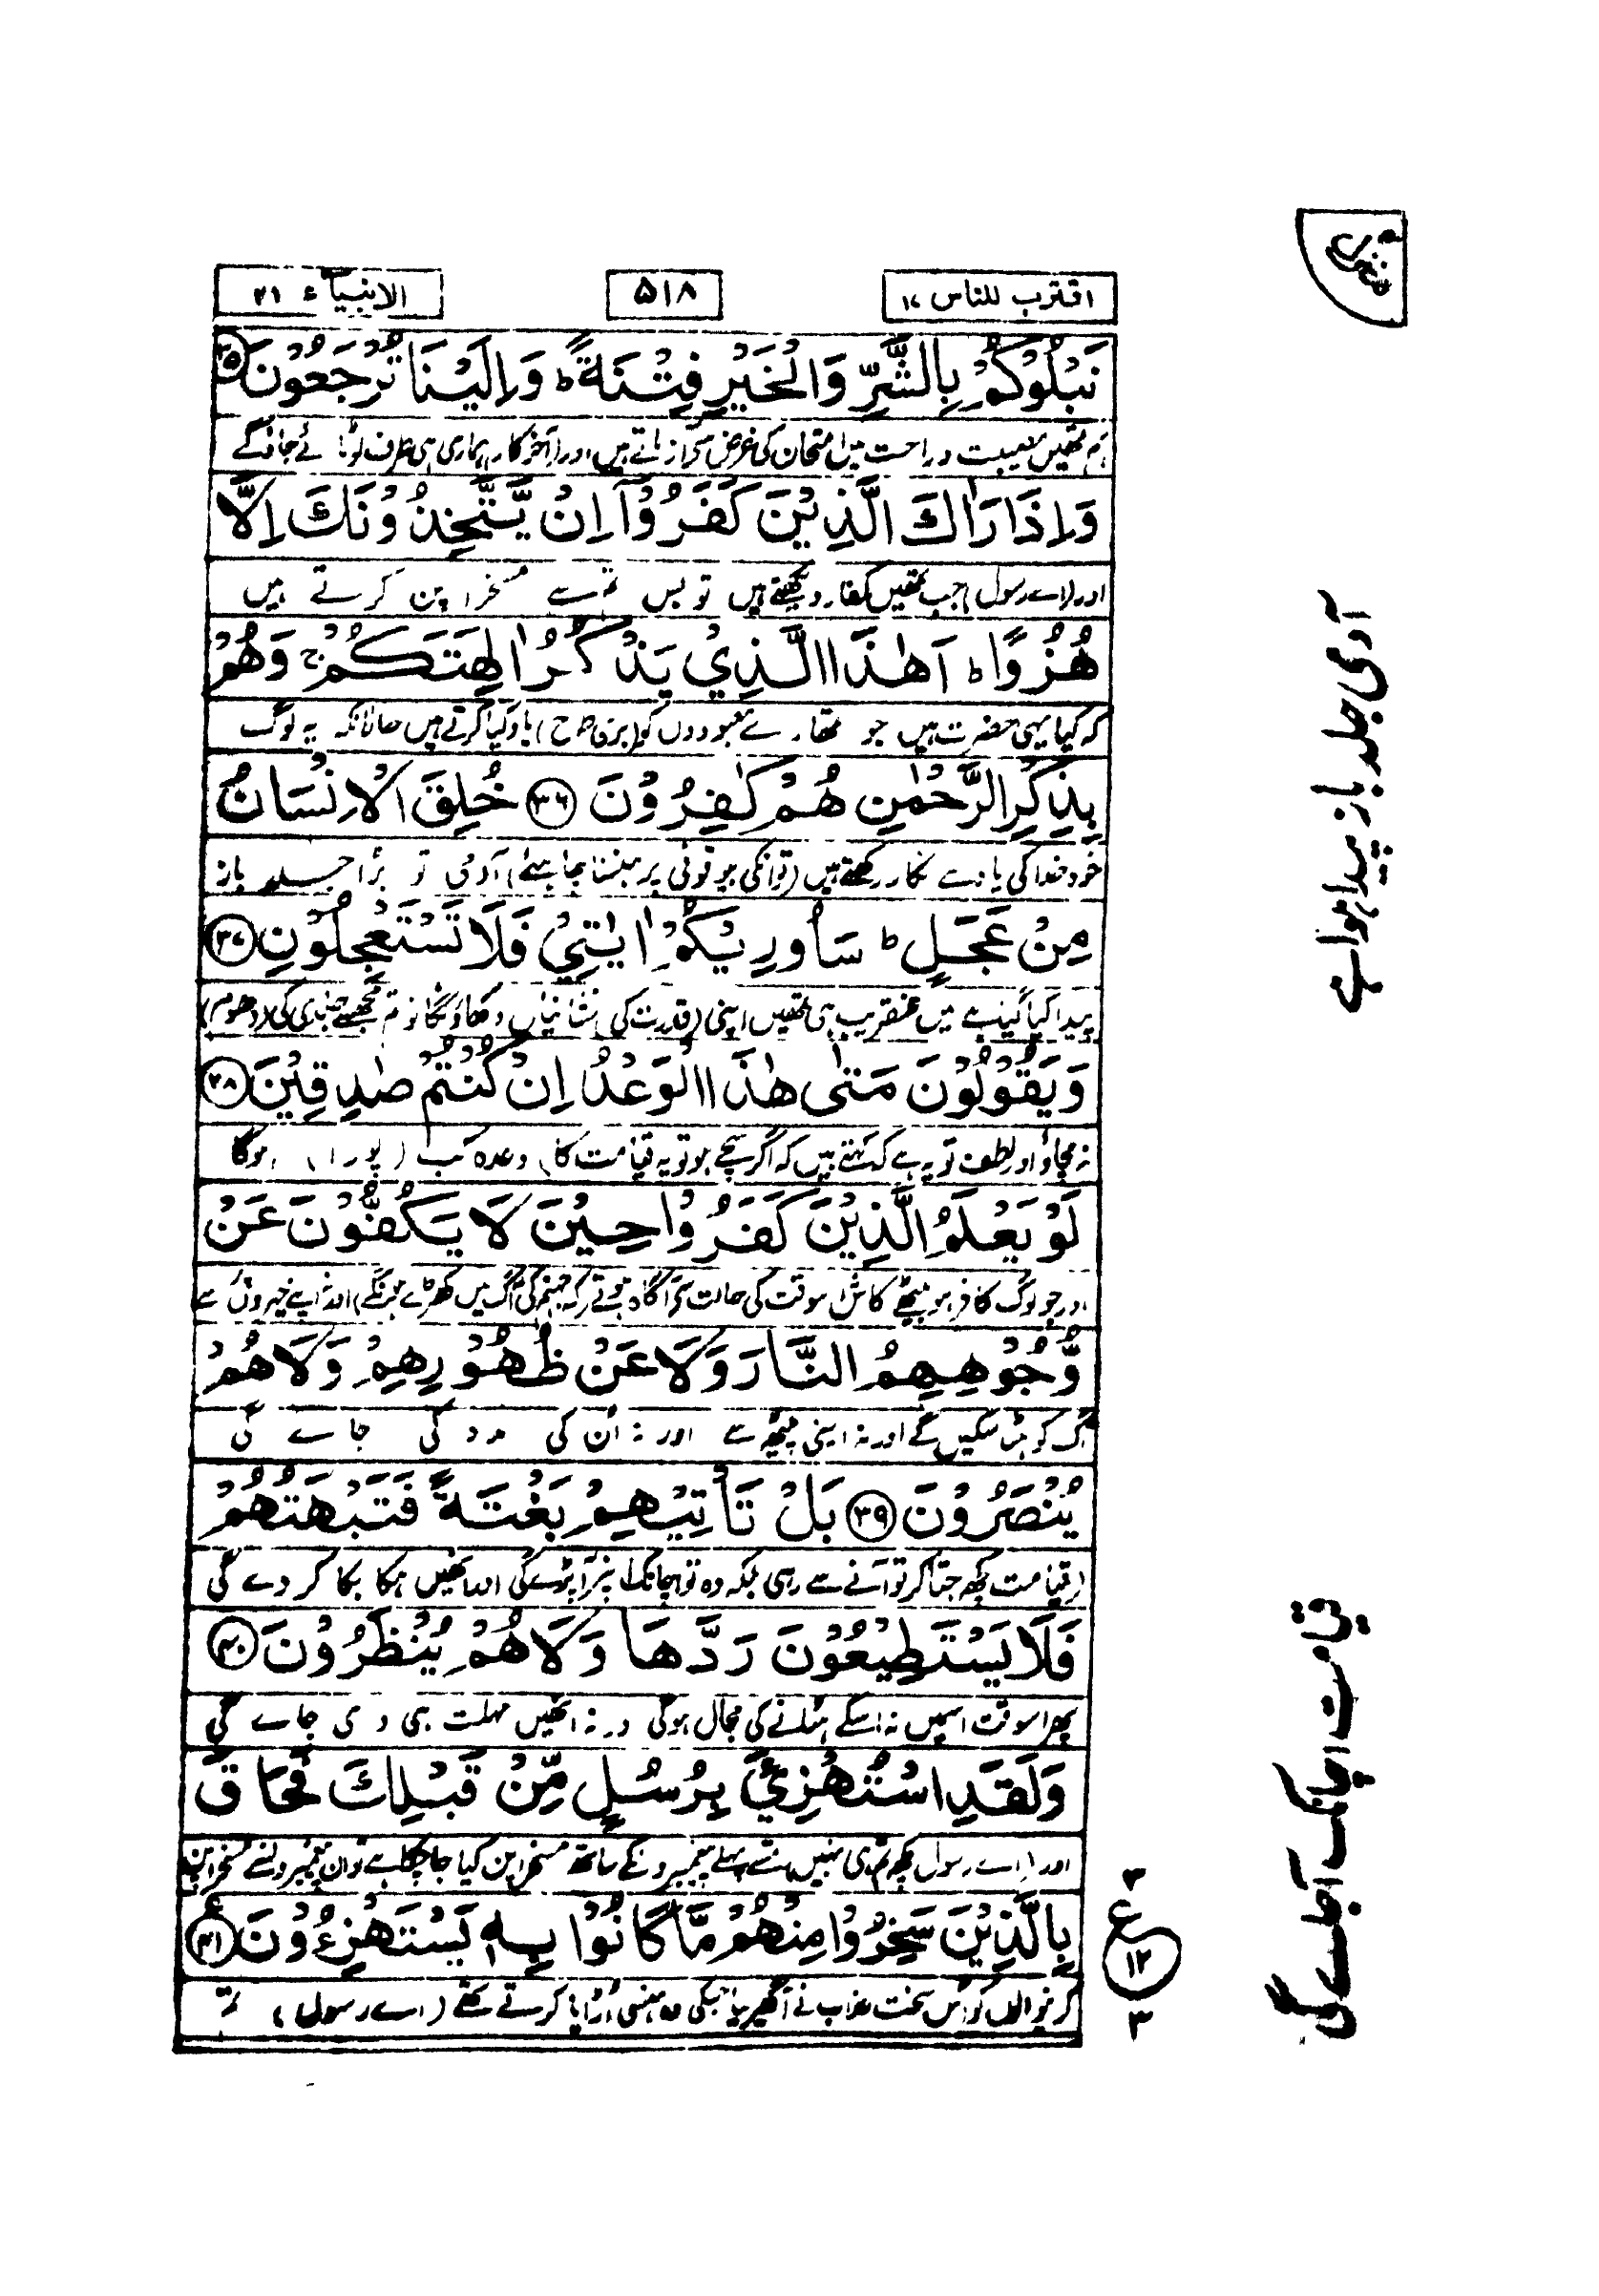 اقترب للناس ۱۷
۵۱۸
الانبیاء ۲۱
نَبْلُوْكُمْ بِالشَّرِّ وَالْخَيْرِ فِتْنَةً ؕ وَاِلَيْنَا تُرْجَعُوْنَ ۳۵
ہم تمھیں مصیبت و راحت میں امتحان کی غرض سے آزماتے ہیں اور (آخرکار) ہماری ہی طرف لوٹائے جاؤگے
وَاِذَا رَاٰكَ الَّذِيْنَ كَفَرُوْۤا اِنْ يَّتَّخِذُوْنَكَ اِلَّا
اور (اے رسول) جب تمھیں کفار دیکھتے ہیں تو بس تم سے مسخراپن کرتے ہیں
هُزُوًا ؕ اَهٰذَا الَّذِيْ يَذْكُرُ اٰلِهَتَكُمْ ۚ وَهُمْ
کہ کیا یہی حضرت ہیں جو تمھارے معبودوں کو (بری طرح) یاد کیا کرتے ہیں حالانکہ یہ لوگ
بِذِكْرِ الرَّحْمٰنِ هُمْ كٰفِرُوْنَ ۳۶ خُلِقَ الْاِنْسَانُ
خود خدا کی یاد سے انکار رکھتے ہیں (تو انکی بیوقوفی پر ہنسنا چاہئے) آدمی تو بڑا جلد باز
مِنْ عَجَلٍ ؕ سَاُورِيْكُمْ اٰيٰتِيْ فَلَا تَسْتَعْجِلُوْنِ ۳۷
پیدا کیا گیا ہے میں عنقریب ہی تمھیں اپنی (قدرت کی) نشانیاں دکھاؤنگا تو تم مجھسے جلدی کی (دھوم)
وَيَقُوْلُوْنَ مَتٰى هٰذَا الْوَعْدُ اِنْ كُنْتُمْ صٰدِقِيْنَ ۳۸
نہ مچاؤ اور لطف تو یہ ہے کہ کہتے ہیں کہ اگر سچے ہو تو یہ قیامت کا) وعدہ کب (پورا) ہوگا
لَوْ يَعْلَمُ الَّذِيْنَ كَفَرُوْا حِيْنَ لَا يَكُفُّوْنَ عَنْ
اور جو لوگ کافر ہو بیٹھے کاش اسوقت کی حالت سے آگاہ ہوتے (کہ جہنم کی آگ میں کھڑے ہونگے) اور نہ اپنے چہروں سے
وُّجُوْهِهِمُ النَّارَ وَلَا عَنْ ظُهُوْرِهِمْ وَلَا هُمْ
آگ کو ہٹا سکیں گے اور نہ اپنی پیٹھ سے اور نہ ان کی مدد کی جاے گی
يُنْصَرُوْنَ ۳۹ بَلْ تَاْتِيْهِمْ بَغْتَةً فَتَبْهَتُهُمْ
(قیامت کچھ جتا کر تو آنے سے رہی) بلکہ وہ تو اچانک ان پر آپڑے گی اور انھیں ہکا بکا کر دے گی
فَلَا يَسْتَطِيْعُوْنَ رَدَّهَا وَلَا هُمْ يُنْظَرُوْنَ ۴۰
پھر اسوقت اسمیں نہ اسکے ہٹانے کی مجال ہوگی ور نہ انھیں مہلت ہی دی جاے گی
وَلَقَدِ اسْتُهْزِئَ بِرُسُلٍ مِّنْ قَبْلِكَ فَحَاقَ
اور (اے رسول) کچھ تم ہی نہیں تم سے پہلے پیغمبروں کے ساتھ مسخراپن کیا جا چکا ہے تو ان پیغمبروں سے مسخراپن
بِالَّذِيْنَ سَخِرُوْا مِنْهُمْ مَّا كَانُوْا بِهٖ يَسْتَهْزِءُوْنَ ۴۱
کرنیوالوں کو اس سخت عذاب نے آ گھیر لیا جسکی وہ ہنسی اڑایا کرتے تھے (اے رسول) تم
۳
ع
۱۲
۳
آدمی جلد باز پیدا ہوا ہے
قیامت اچانک آجاے گی